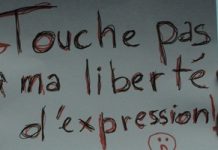 Touche pas
à ma liberté
d'expression!